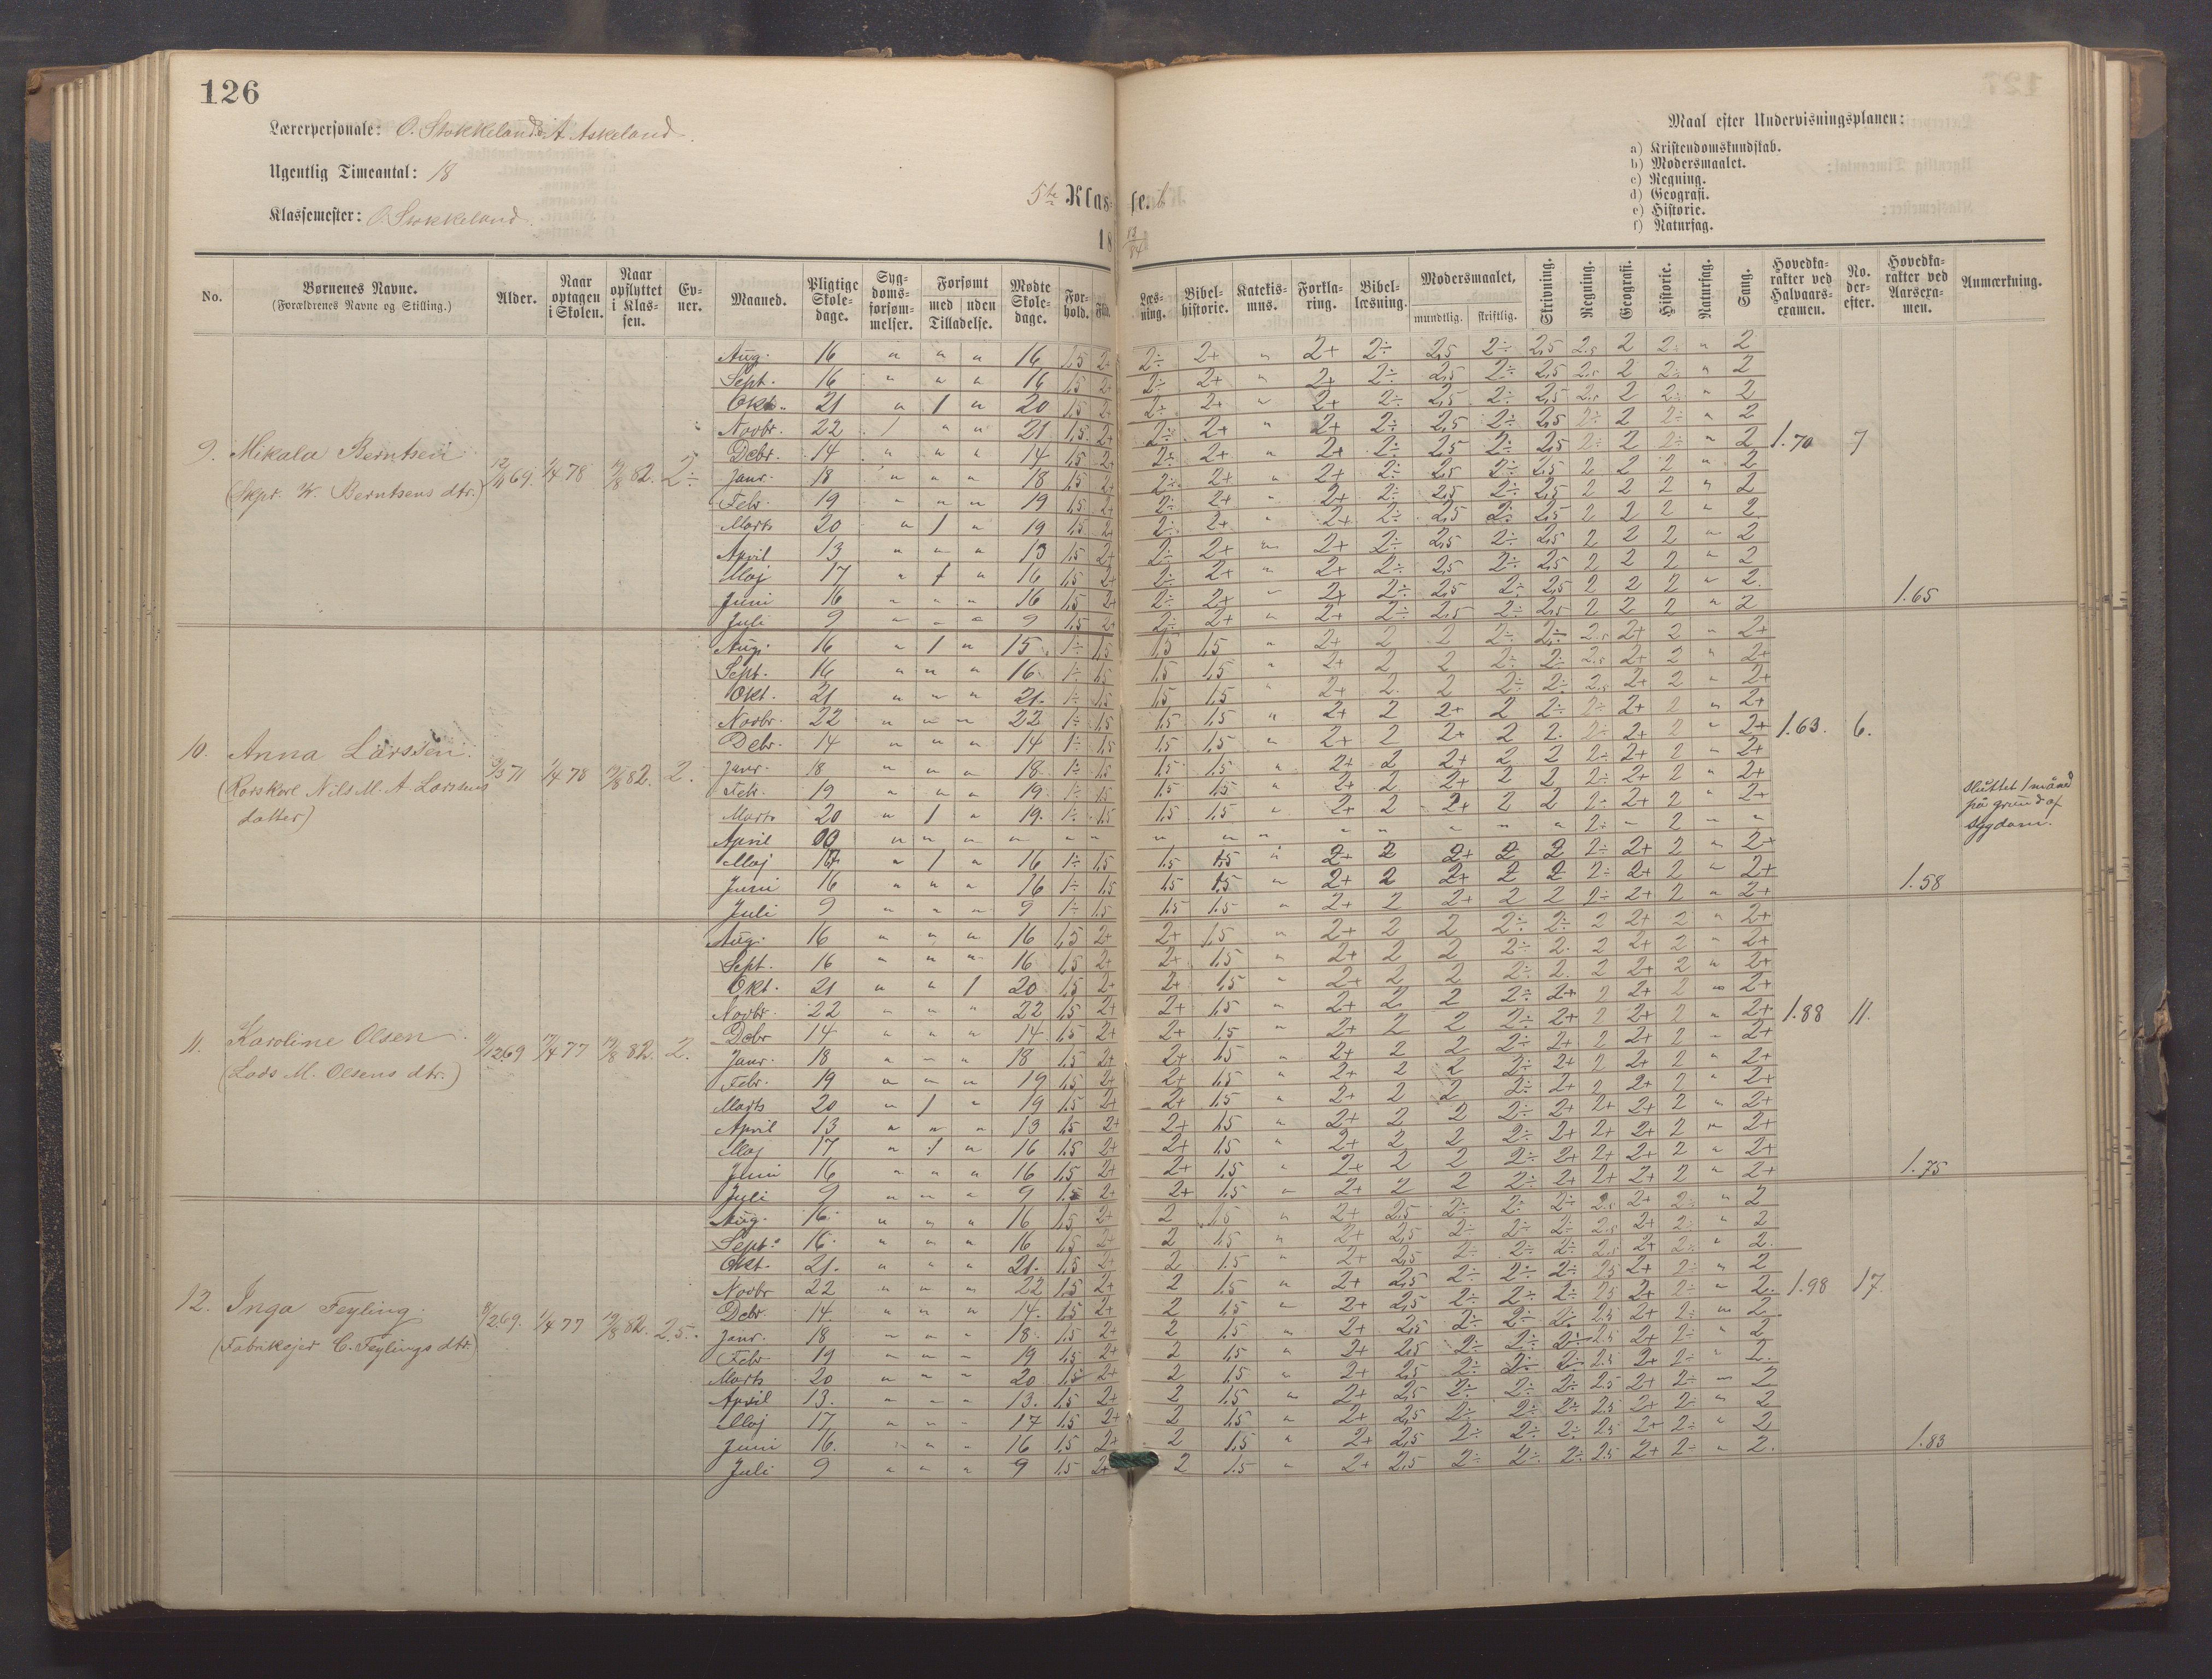 126
Lærerpersonale: O. Stokkeland & A Askeland.
Ugentlig Timeantal: 18
Klassemester: O. Stokkeland.
5te Klasse. b
18 83/84
Maal efter Undervisningsplanen:
a) Kristendomskundskab.
b) Modersmaalet.
c) Regning.
d) Geografi.
e) Historie.
f) Naturfag.
No. Børnenes Navne. (Forældrenes Navne og Stilling.) Alder. Naar optagen i Skolen. Naar opflyttet i Klassen. Evner. Maaned. Pligtige Skoledage. Sygdomsforsømmelser. Forsømt med uden Tilladelse. Mødte Skoledage. Forhold. Flid. Læsning. Bibelhistorie. Katekismus. Forklaring. Bibellæsning. Modersmaalet, mundtlig. skriftlig. Skrivning. Regning. Geografi. Historie. Naturfag. Sang. Hovedkarakter ved Halvaarsexamen. No. derefter. Hovedkarakter ved Aarsexamen. Anmærkning.
9. Mikala Berntsen
(Skpr. W. Berntsens dtr.) 69. 1/4 78 82. 2÷
Aug. 16 " " " 16 1,5 2+ 2÷ 2+ " 2+ 2÷ 2,5 2÷ 2,5 2.5 2 2÷ " 2
Sept. 16 " " " 16 1,5 2+ 2÷ 2+ " 2+ 2÷ 2,5 2÷ 2,5 2.5 2 2÷ " 2
Okt. 21 " 1 " 20 1,5 2+ 2÷ 2+ " 2+ 2÷ 2,5 2÷ 2,5 2.5 2 2÷ " 2
Novbr. 22 1 " " 21 1,5 2+ 2÷ 2+ " 2+ 2÷ 2,5 2÷ 2,5 2÷ 2 2÷ " 2
Debr. 14 " " " 14 1,5 2+ 2÷ 2+ " 2+ 2÷ 2,5 2÷ 2,5 2÷ 2 2÷ " 2 1.70 7
Janr. 18 " " " 18 1,5 2+ 2÷ 2+ " 2+ 2÷ 2,5 2÷ 2,5 2 2 2 " 2
Febr. 19 " " " 19 1,5 2+ 2÷ 2+ " 2+ 2÷ 2,5 2÷ 2,5 2 2 2 " 2
Marts 20 " 1 " 19 1,5 2+ 2÷ 2+ " 2+ 2÷ 2,5 2÷ 2,5 2 2 2 " 2
April 13 " " " 13 1,5 2+ 2÷ 2+ " 2+ 2÷ 2,5 2÷ 2,5 2 2 2 " 2
Maj 17 " 1 " 16 1,5 2+ 2÷ 2+ " 2+ 2÷ 2,5 2÷ 2,5 2 2 2 " 2
Juni 16 " " " 16 1,5 2+ 2÷ 2+ " 2+ 2÷ 2,5 2÷ 2,5 2 2 2 " 2. 1.65
Juli 9 " " " 9 1,5 2+ 2÷ 2+ " 2+ 2÷ 2,5 2÷ 2,5 2 2 2 " 2
10. Anna Larssen.
(Rorskarl Nils M. A. Larssens
datter) 71 1/4 78 82. 2.
Aug. 16 " 1 " 15 1÷ 1,5 1,5 1,5 " 2+ 2 2 2÷ 2÷ 2.5 2+ 2 " 2+
Sept. 16 " " " 16 1÷ 1,5 1,5 1,5 " 2+ 2 2 2÷ 2÷ 2.5 2+ 2 " 2+
Okt. 21 " " " 21. 1÷ 1,5 1,5 1,5 " 2+ 2 2 2÷ 2÷ 2,5 2+ 2 " 2+
Novbr. 22 " " " 22 1÷ 1,5 1,5 1,5 " 2+ 2 2+ 2 2÷ 2÷ 2+ 2 " 2+
Debr. 14 " " " 14 1÷ 1,5 1,5 1,5 " 2+ 2 2+ 2 2. 2÷ 2+ 2 " 2+ 1.63. 6.
Janr. 18 " " " 18 1÷ 1,5 1,5 1,5 " 2+ 2 2+ 2 2 2÷ 2+ 2 " 2+
Febr. 19 " " " 19 1÷ 1,5 1,5 1,5 " 2+ 2 2+ 2 2 2÷ 2+ 2 " 2+
Marts 20 " 1 " 19. 1÷ 1,5 1,5 1,5 " 2+ 2 2+ 2 2 2÷ 2+ 2 " 2+
April 00 " " " " " " " " " " " " " " 2÷ " 2 " "
Maj 17 " 1 " 16 1÷ 1,5 1.5 1.5 " 2+ 2 2+ 2 2 2÷ 2+ 2 " 2+
Juni 16 " " " 16 1÷ 1,5 1,5 1.5 " 2+ 2 2+ 2 2 2÷ 2+ 2 " 2+ 1.58
Juli 9 " " " 9 1÷ 1,5 1.5 1.5 " 2+ 2 2+ 2 2 2÷ 2+ 2 " 2+
Sluttet 1 måned
på grund af
sygdom.
11. Karoline Olsen.
(Lods M. Olsens dtr.) 69 77 82. 2.
Aug. 16 " " " 16 1,5 2+ 2+ 1,5 " 2+ 2 2 2÷ 2÷ 2 2+ 2 " 2+
Sept. 16 " " " 16 1,5 2+ 2+ 1,5 " 2+ 2 2 2÷ 2. 2 2+ 2 " 2+
Okt. 21 " " 1 20 1,5 2+ 2+ 1,5 " 2+ 2 2 2÷ 2. 2 2+ 2 " 2+
Novbr. 22 " " " 22 1,5 2+ 2+ 1,5 " 2+ 2 2 2÷ 2+ 2 2+ 2 " 2+
Debr 14 " " " 14 1,5 2+ 2+ 1,5 " 2+ 2 2 2÷ 2+ 2 2+ 2 " 2+ 1.88 11.
Janr. 18 " " " 18 1,5 2+ 2+ 1,5 " 2+ 2 2 2÷ 2+ 2 2+ 2 " 2+
Febr. 19 " " " 19 1,5 2+ 2+ 1,5 " 2+ 2 2 2÷ 2+ 2 2+ 2 " 2+
Marts 20 " 1 " 19 1,5 2+ 2+ 1,5 " 2+ 2 2 2÷ 2+ 2 2+ 2 " 2+
April 13 " " " 13 1,5 2+ 2+ 1,5 " 2+ 2 2 2÷ 2+ 2+ 2+ 2 " 2+
Maj 17 " 1 " 16 1,5 2+ 2+ 1,5 " 2+ 2 2 2÷ 2+ 2+ 2+ 2 " 2+
Juni 16 " " " 16 1,5 2+ 2+ 1,5 " 2+ 2 2 2÷ 2+ 2+ 2+ 2 " 2+ 1.75
Juli 9 " " " 9 1,5 2+ 2+ 1,5 " 2+ 2 2 2÷ 2+ 2+ 2+ 2 " 2+
12. Inga Feyling.
(Fabrikejer C. Feylings dtr.) 69. 1/4 77 82. 2.5.
Aug. 16 " " " 16 1,5 2+ 2 1,5 " 2+ 2,5 2÷ 2÷ 2÷ 2.5 2+ 2÷ " 2
Sept. 16 " " " 16 1,5 2+ 2 1,5 " 2+ 2,5 2÷ 2÷ 2÷ 2.5 2+ 2÷ " 2
Okt. 21. " " " 21. 1,5 2+ 2 1.5 " 2+ 2,5 2÷ 2÷ 2÷ 2.5 2+ 2÷ " 2.
Novbr 22 " " " 22 1,5 2+ 2 1,5 " 2+ 2,5 2÷ 2÷ 2÷ 2.5 2+ 2÷ " 2
Debr. 14. " " " 14. 1,5 2+ 2 1,5 " 2+ 2,5 2÷ 2÷ 2÷ 2.5 2+ 2÷ " 2. 1.98 17.
Janr. 18 " " " 18 1,5 2+ 2 1,5 " 2+ 2,5 2÷ 2÷ 2÷ 2.5 2+ 2÷ " 2
Febr 19 " " " 19 1,5 2+ 2 1,5 " 2+ 2,5 2÷ 2÷ 2÷ 2.5 2+ 2÷ " 2
Marts 20 " " " 20 1,5 2+ 2 1,5 " 2+ 2,5 2÷ 2÷ 2÷ 2.5 2+ 2÷ " 2.
April 13. " " " 13. 1,5 2+ 2 1,5 " 2+ 2,5 2÷ 2÷ 2÷ 2.5 2+ 2÷ " 2
Maj 17 " " " 17 1,5 2+ 2 1,5 " 2+ 2,5 2÷ 2÷ 2÷ 2.5 2+ 2÷ " 2
Juni 16. " " " 16 1,5 2+ 2 1,5 " 2+ 2,5 2÷ 2÷ 2÷ 2.5 2+ 2÷ " 2 1.83
Juli 9 " " " 9 1,5 2+ 2 1.5 " 2+ 2,5 2÷ 2÷ 2÷ 2.5 2+ 2÷ " 2.